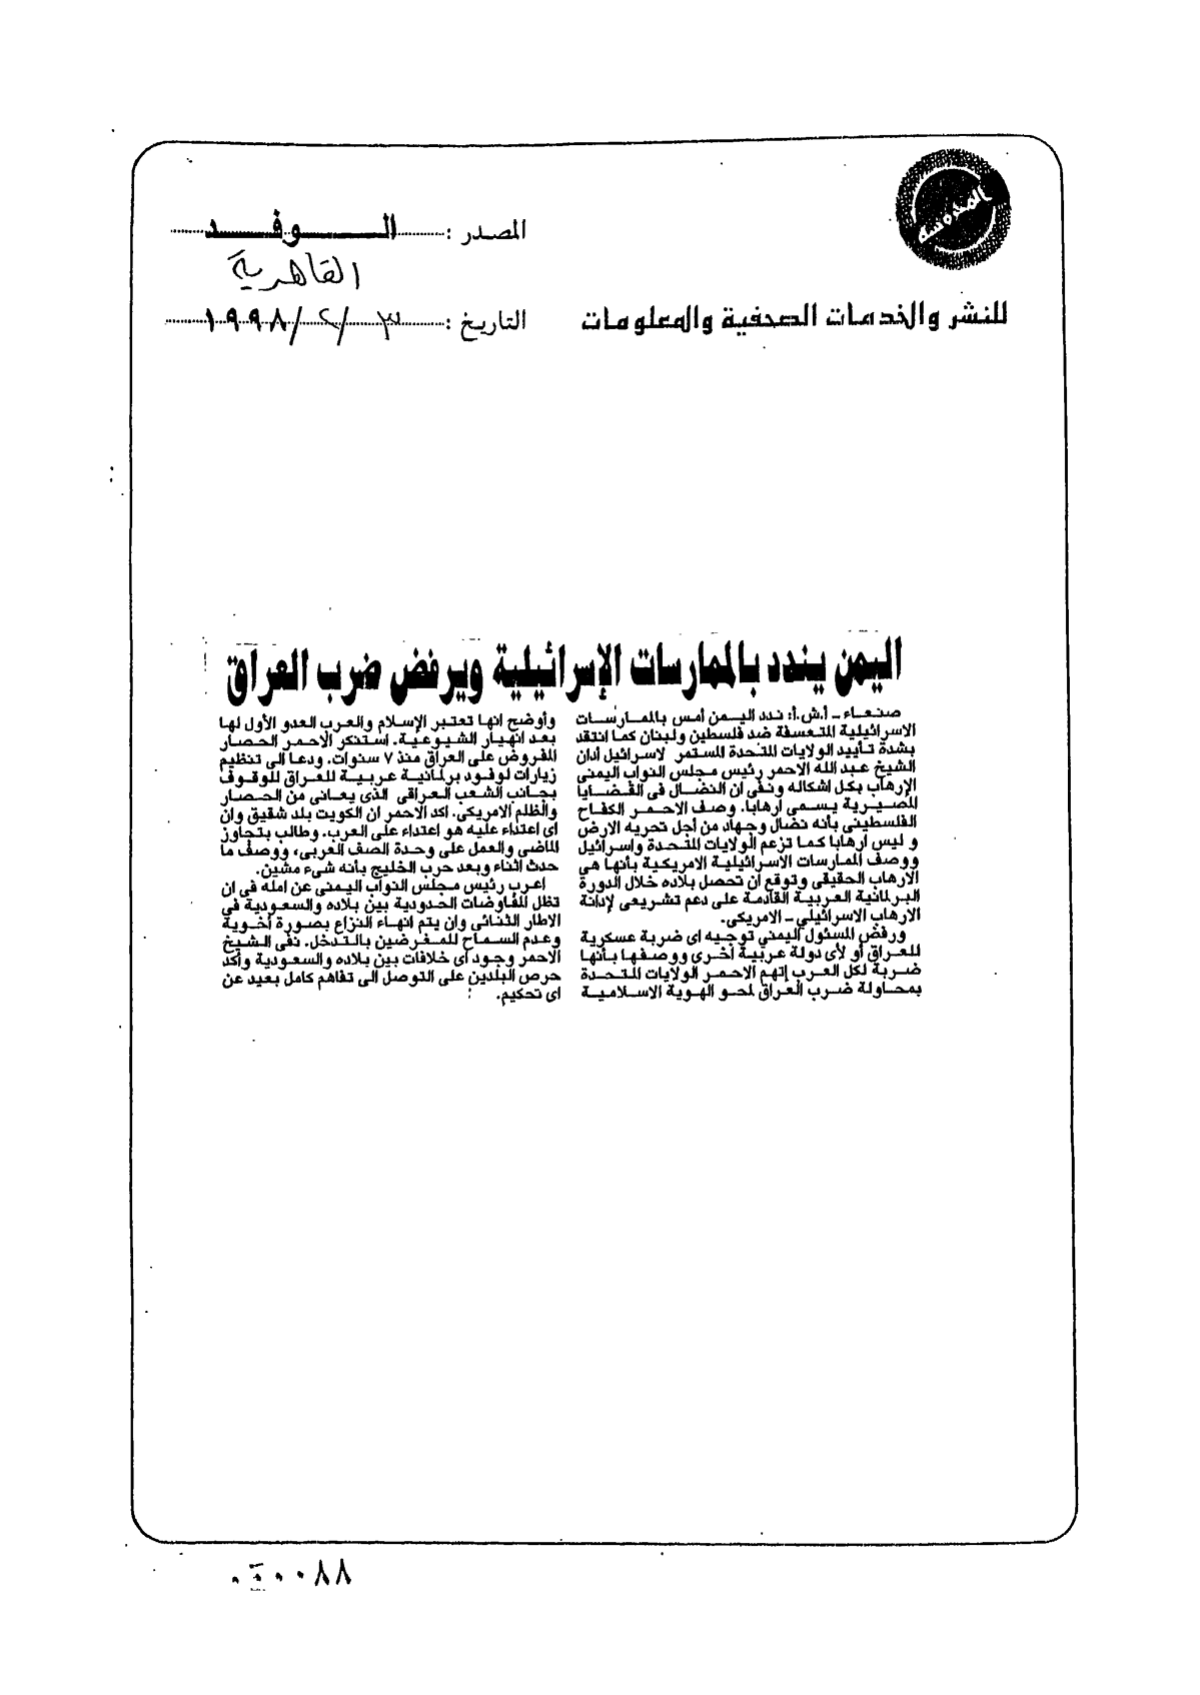 المحروسة
المصدر : الـــوفـــد
القاهرية
للنشر والخدمات الصحفية والمعلومات
التاريخ : ٣ / ٢ / ١٩٩٨
اليمن يندد بالممارسات الإسرائيلية ويرفض ضرب العراق
صنعاء - أ.ش.أ: ندد اليمن أمس بالممارسات
الاسرائيلية المتعسفة ضد فلسطين ولبنان كما انتقد
بشدة تأييد الولايات المتحدة المستمر لاسرائيل أدان
الشيخ عبد الله الاحمر رئيس مجلس النواب اليمنى
الإرهاب بكل اشكاله ونفى ان النضال فى القضايا
المصيرية يسمى ارهابا. وصف الاحمر الكفاح
الفلسطينى بأنه نضال وجهاد من أجل تحريه الارض
و ليس ارهابا كما تزعم الولايات المتحدة واسرائيل
ووصف الممارسات الاسرائيلية الامريكية بأنها هي
الارهاب الحقيقى وتوقع ان تحصل بلاده خلال الدورة
البرلمانية العربية القادمة على دعم تشريعى لإدانة
الارهاب الاسرائيلي - الامريكى.
ورفض المسئول اليمني توجيه اى ضربة عسكرية
للعراق أو لأى دولة عربية أخرى ووصفها بأنها
ضربة لكل العرب إتهم الاحمر الولايات المتحدة
بمحاولة ضرب العراق لمحو الهوية الاسلامية
وأوضح انها تعتبر الإسلام والعرب العدو الأول لها
بعد انهيار الشيوعية. استنكر الاحمر الحصار
المفروض على العراق منذ ٧ سنوات. ودعا الى تنظيم
زيارات لوفود برلمانية عربية للعراق للوقوف
بجانب الشعب العراقى الذى يعانى من الحصار
والظلم الامريكى. اكد الاحمر ان الكويت بلد شقيق وان
اى اعتداء عليه هو اعتداء على العرب. وطالب بتجاوز
الماضى والعمل على وحدة الصف العربى، ووصف ما
حدث اثناء وبعد حرب الخليج بأنه شىء مشين.
اعرب رئيس مجلس النواب اليمنى عن امله فى ان
تظل المفاوضات الحدودية بين بلاده والسعودية في
الاطار الثنائى وان يتم انهاء النزاع بصورة أخوية
وعدم السماح للمغرضين بالتدخل. نفى الشيخ
الاحمر وجود أى خلافات بين بلاده والسعودية وأكد
حرص البلدين على التوصل الى تفاهم كامل بعيد عن
اى تحكيم.